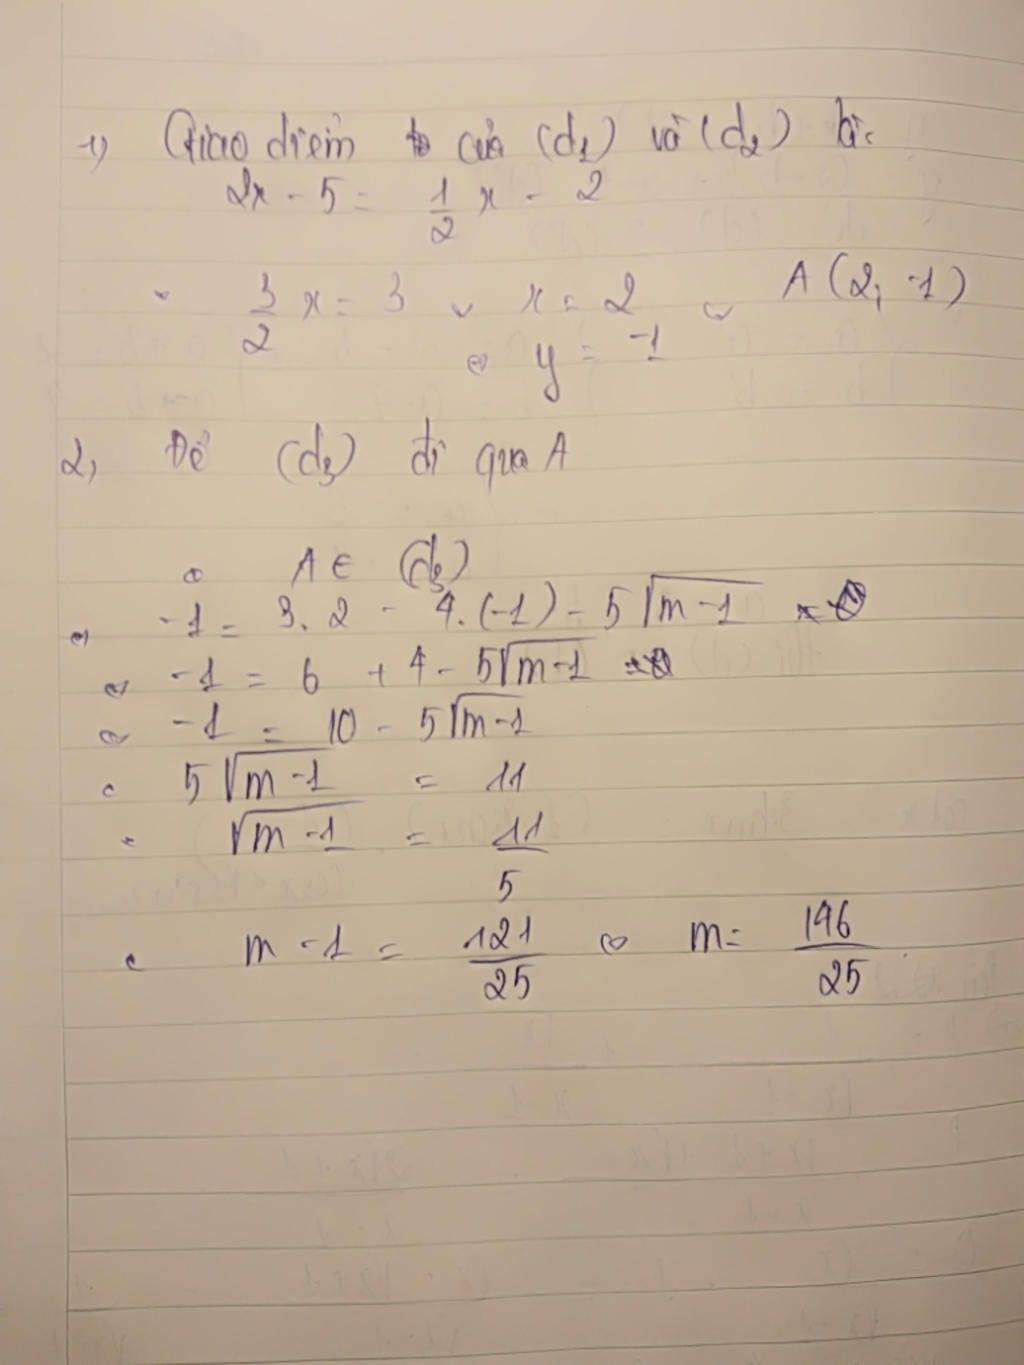 1) Giao điểm của (d1) và (d2) là:
2x - 5 = 1/2 x - 2
3/2 x = 3 x = 2 A(2; -1)
⇔ y = -1
2, Để (d3) đi qua A
⇔ A ∈ (d3)
⇔ -1 = 3.2 - 4.(-1) - 5√m-1
⇔ -1 = 6 + 4 - 5√m-1
⇔ -1 = 10 - 5√m-1
5√m-1 = 11
√m-1 = 11/5
m - 1 = 121/25 ⇔ m = 146/25